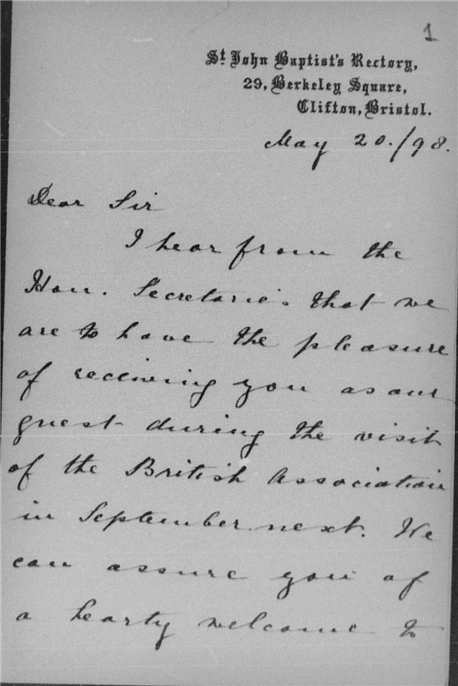 1
St John Baptist's Rectory,
29, Berkeley Square,
Clifton, Bristol.
May 20./98.
Dear Sir
I hear from the
Hon. Secretaries that we
are to have the pleasure
of receiving you as our
guest during the visit
of the British Association
in September next. We
can assure you of
a hearty welcome to